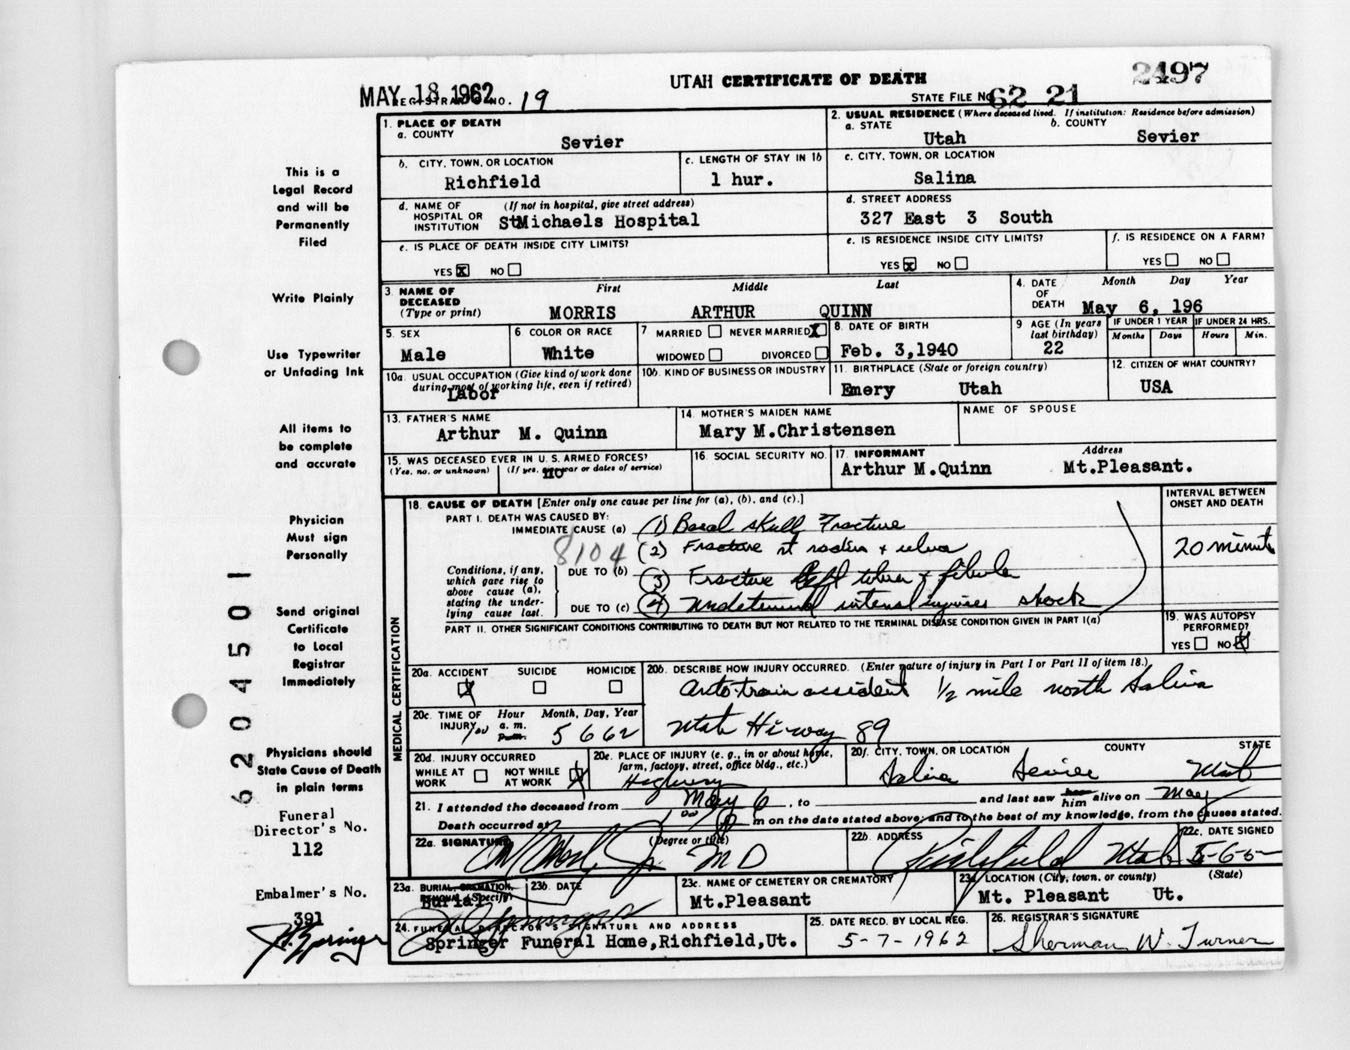 UTAH CERTIFICATE OF DEATH
2497
MAY 18 1962
REGISTRAR'S NO. 19
STATE FILE NO. 62 21
1. PLACE OF DEATH
a. COUNTY
Sevier
2. USUAL RESIDENCE (Where deceased lived. If institution: Residence before admission)
a. STATE Utah b. COUNTY Sevier
b. CITY, TOWN, OR LOCATION
Richfield
c. LENGTH OF STAY IN 1b
1 hur.
c. CITY, TOWN, OR LOCATION
Salina
d. NAME OF HOSPITAL OR INSTITUTION (If not in hospital, give street address)
St Michaels Hospital
d. STREET ADDRESS
327 East 3 South
e. IS PLACE OF DEATH INSIDE CITY LIMITS?
YES X NO
e. IS RESIDENCE INSIDE CITY LIMITS?
YES X NO
f. IS RESIDENCE ON A FARM?
YES NO
3. NAME OF DECEASED (Type or print)
First Middle Last
MORRIS ARTHUR QUINN
4. DATE OF DEATH
Month Day Year
May 6, 196
5. SEX
Male
6. COLOR OR RACE
White
7 MARRIED NEVER MARRIED X
WIDOWED DIVORCED
8. DATE OF BIRTH
Feb. 3,1940
9 AGE (In years last birthday)
22
IF UNDER 1 YEAR
Months Days
IF UNDER 24 HRS.
Hours Min.
10a. USUAL OCCUPATION (Give kind of work done during most of working life, even if retired)
Labor
10b. KIND OF BUSINESS OR INDUSTRY
11. BIRTHPLACE (State or foreign country)
Emery Utah
12. CITIZEN OF WHAT COUNTRY?
USA
13. FATHER'S NAME
Arthur M. Quinn
14. MOTHER'S MAIDEN NAME
Mary M.Christensen
NAME OF SPOUSE
15. WAS DECEASED EVER IN U. S. ARMED FORCES?
(Yes, no, or unknown) (If yes, give war or dates of service)
no
16. SOCIAL SECURITY NO.
17. INFORMANT Address
Arthur M.Quinn Mt.Pleasant.
MEDICAL CERTIFICATION
18. CAUSE OF DEATH [Enter only one cause per line for (a), (b), and (c).]
INTERVAL BETWEEN ONSET AND DEATH
PART I. DEATH WAS CAUSED BY:
IMMEDIATE CAUSE (a) (1) Basal skull Fracture
8104
(2) Fracture rt radius & ulna
20 minut
Conditions, if any, which gave rise to above cause (a), stating the underlying cause last.
DUE TO (b) (3) Fracture left tibia & fibula
DUE TO (c) (4) undetermined internal injuries shock
PART II. OTHER SIGNIFICANT CONDITIONS CONTRIBUTING TO DEATH BUT NOT RELATED TO THE TERMINAL DISEASE CONDITION GIVEN IN PART I(a)
19. WAS AUTOPSY PERFORMED?
YES NO X
20a. ACCIDENT SUICIDE HOMICIDE
X
20b. DESCRIBE HOW INJURY OCCURRED. (Enter nature of injury in Part I or Part II of item 18.)
Auto-train accident 1/2 mile north Salina
Utah Hi-way 89
20c. TIME OF INJURY Hour Month, Day, Year
a. m.
p. m.
5 6 62
20d. INJURY OCCURRED
WHILE AT WORK NOT WHILE AT WORK X
20e. PLACE OF INJURY (e. g., in or about home, farm, factory, street, office bldg., etc.)
Highway
20f. CITY, TOWN, OR LOCATION COUNTY STATE
Salina Sevier Utah
21. I attended the deceased from May 6, to and last saw her him alive on May
Death occurred at m on the date stated above; and to the best of my knowledge, from the causes stated.
22a. SIGNATURE (Degree or title)
Jr. MD
22b. ADDRESS
Richfield Utah
22c. DATE SIGNED
5-6-6
23a. BURIAL, CREMATION, REMOVAL (Specify)
Burial
23b. DATE
23c. NAME OF CEMETERY OR CREMATORY
Mt.Pleasant
23d. LOCATION (City, town, or county) (State)
Mt. Pleasant Ut.
24. FUNERAL DIRECTOR'S SIGNATURE AND ADDRESS
Springer Funeral Home,Richfield,Ut.
25. DATE RECD. BY LOCAL REG.
5-7-1962
26. REGISTRAR'S SIGNATURE
Sherman W. Turner
This is a
Legal Record
and will be
Permanently
Filed
Write Plainly
Use Typewriter
or Unfading Ink
All items to
be complete
and accurate
Physician
Must sign
Personally
Send original
Certificate
to Local
Registrar
Immediately
Physicians should
State Cause of Death
in plain terms
Funeral
Director's No.
112
Embalmer's No.
391
Springer
6204501